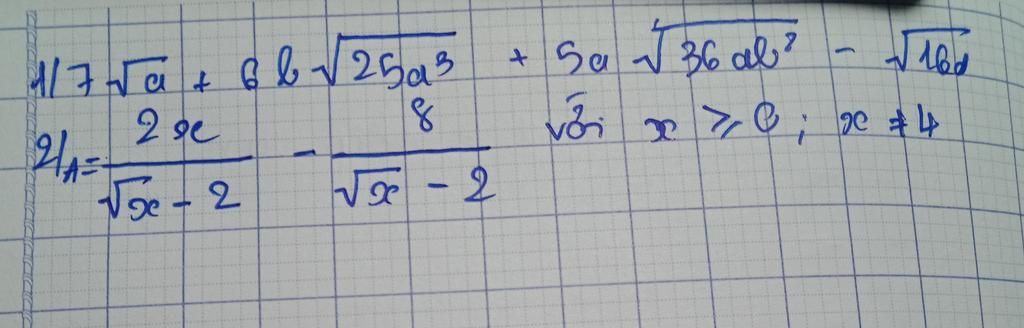 1/ 7√a + 6b√25a³ + 5a√36ab² - √16a
2/ A = 2x/(√x - 2) - 8/(√x - 2) với x ≥ 0; x ≠ 4